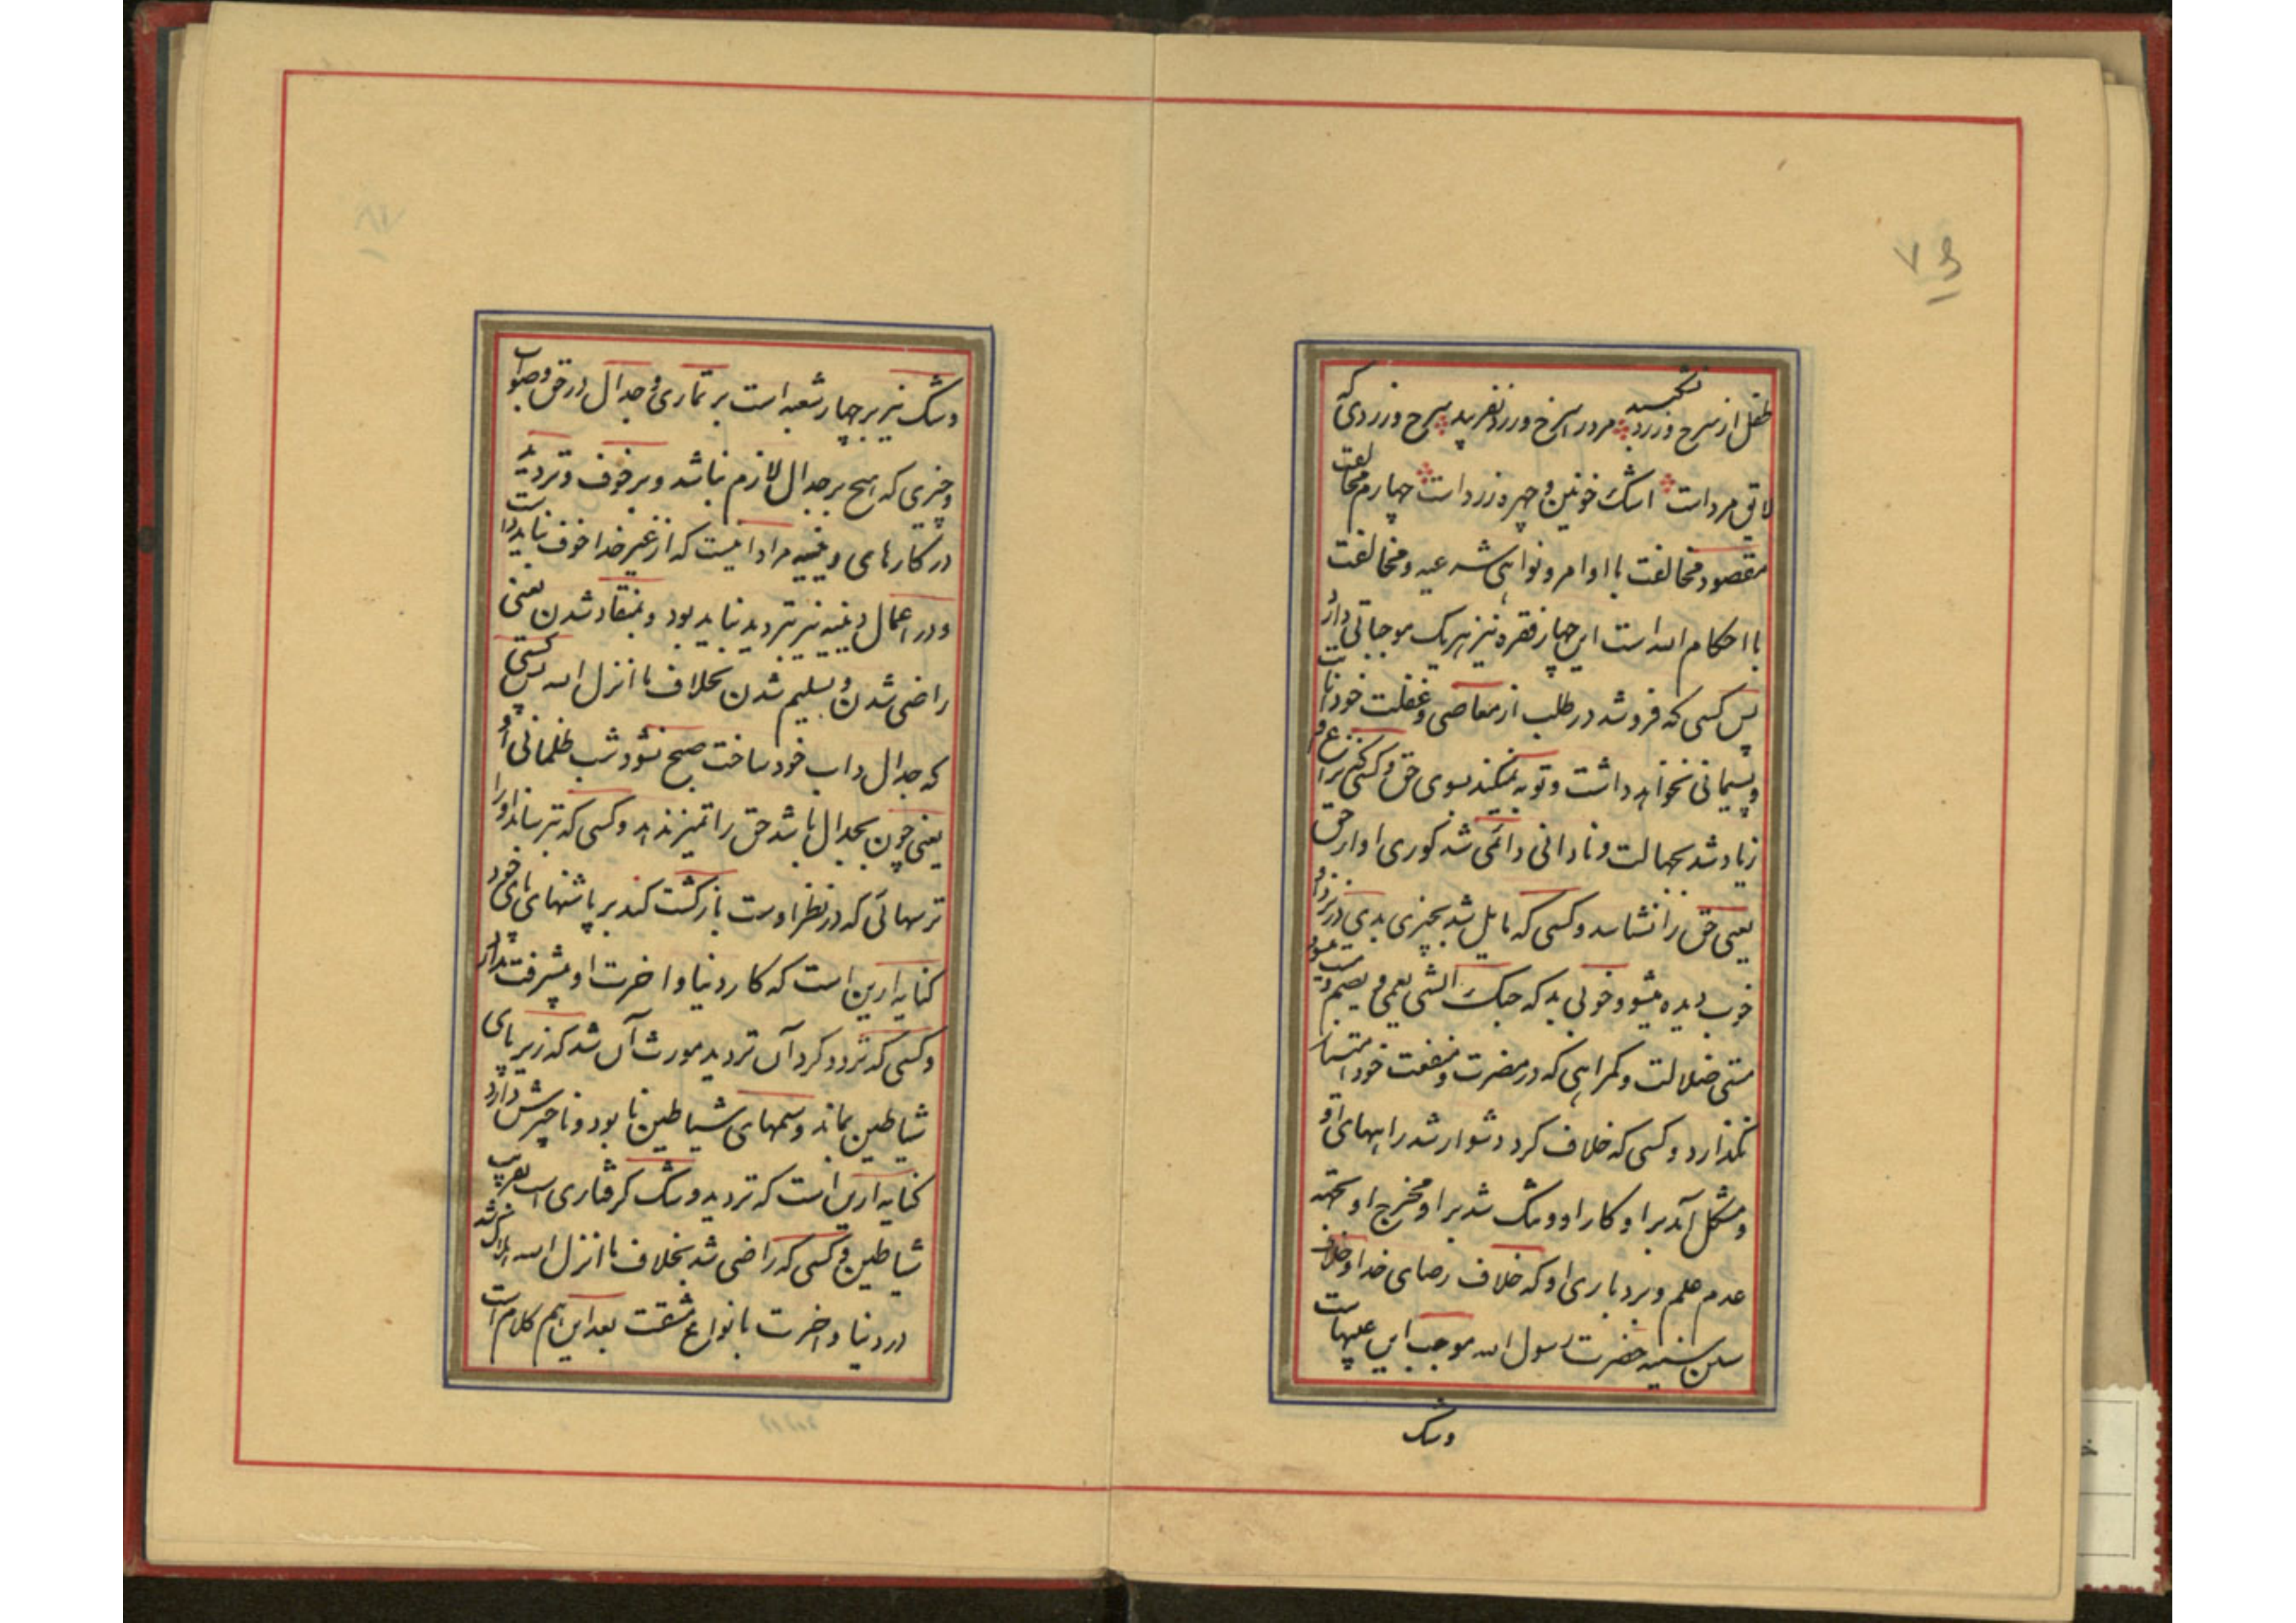 طفل از سرخ و زرد نشکیبد مرد را سرخ و زرد نفریبد سرخ و زردی که
لایق مرد است اشک خونین و چهره زرد است چهارم مخالفت
مقصود مخالفت با اوامر و نواهی شرعیه و مخالفت
با احکام الله است این چهار فقره نیز هریک موجباتی دارد
پس کسی که فرو شد در طلب از معاصی و غفلت خود
و پشیمانی نخواهد داشت و توبه نمیکند بسوی حق و کسی که نزاع او
زیاد شد بجهالت و نادانی دائمی شد کوری او از حق
یعنی حق را نشناسد و کسی که مایل شد بچیزی بدی در نزد او
خوب دیده میشود و خوبی بد که حبک الشی یعمی و یصم
مستی ضلالت و گمراهی که در مضرت و منفعت خود امتیاز
نگذارد و کسی که خلاف کرد دشوار شد راههای او
و مشکل آمد بر او کار او و تنگ شد بر او مخرج او
عدم علم و بردباری او که خلاف رضای خدا و خلاف
سنن سنیه حضرت رسول الله موجب این
وشک
وشک نیز بر چهار شعبه است بر تماری و جدال در حق و صواب
و چیزی که هیچ بر جدال لازم نباشد و بر خوف و تردید
در کارهای دینیه مراد اینست که از غیر خدا خوف نباید داشت
و در اعمال دینیه نیز تردید نباید بود و بمنقاد شدن یعنی
راضی شدن و تسلیم شدن بخلاف ما انزل الله پس کسی
که جدال داب خود ساخت صبح نشود شب ظلمانی او
یعنی چون بجدال باشد حق را تمیز ندهد و کسی که بترساند او را
ترسهائی که در نظر اوست بازگشت کند بر پاشنهای پای خود
کنایه ازین است که کار دنیا و اخرت او پیشرفت ندارد
و کسی که تردد کرد آن تردید مورث آن شد که زیر پای
شیاطین بماند و سمهای شیاطین نابود و ناچیزش دارد
کنایه ازین است که تردید و شک گرفتاری است بفریب
شیاطین و کسی که راضی شد بخلاف ما انزل الله هلاک شد
در دنیا و اخرت بانواع مشقت بعد این هم کلام است